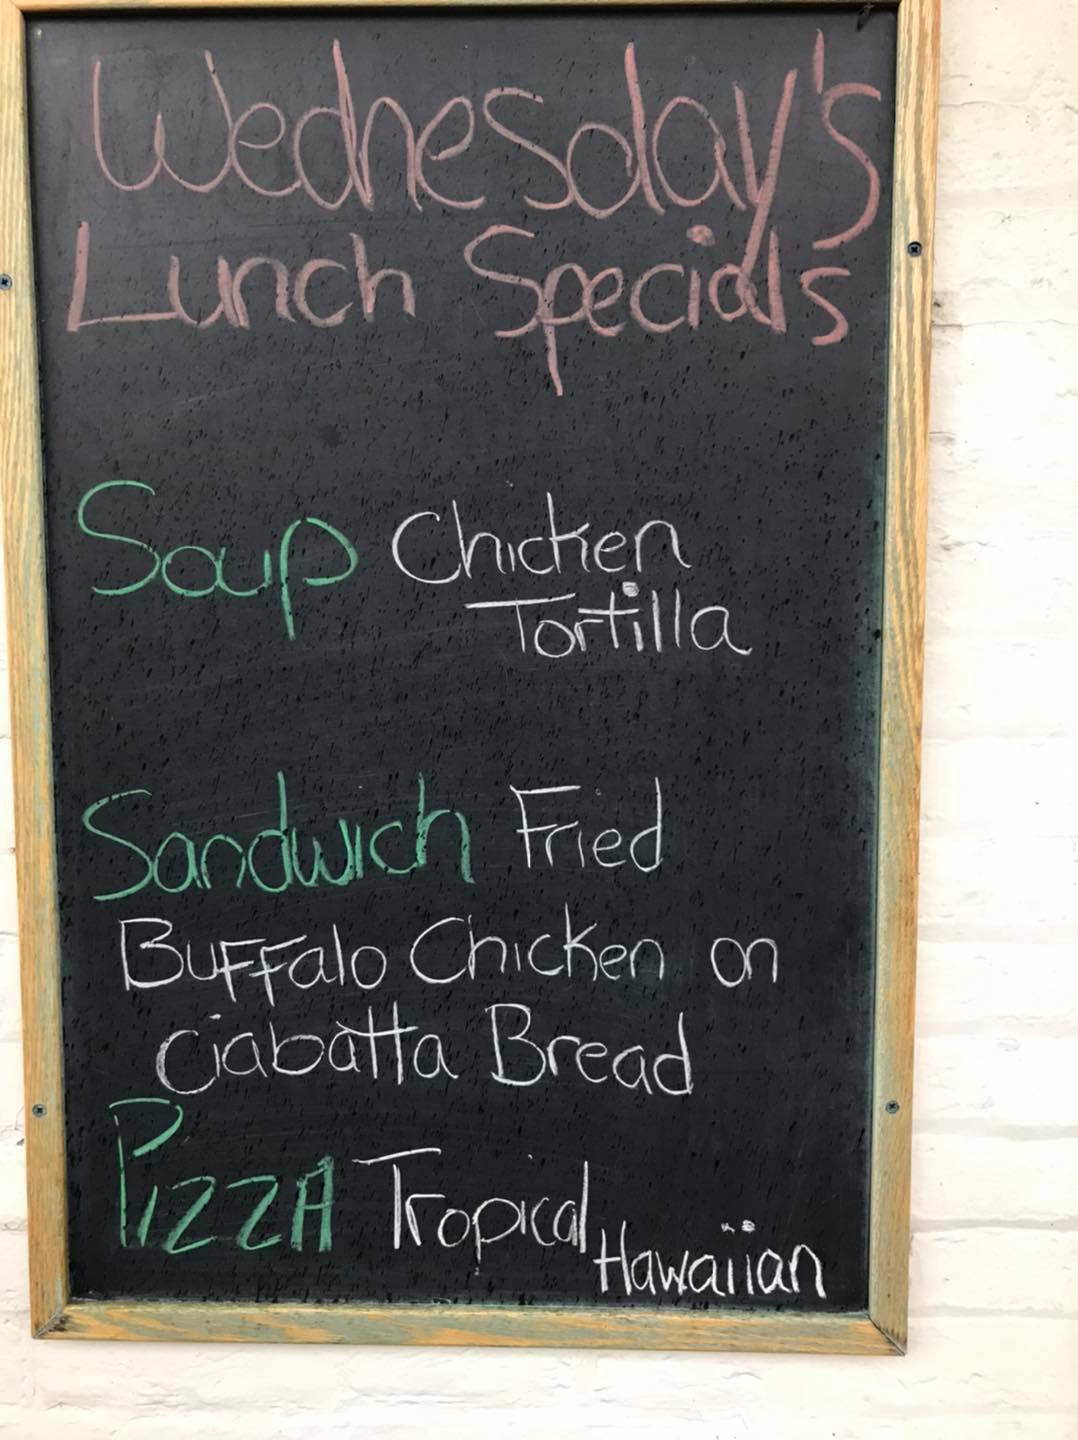 Wednesday's
Lunch Specials
Soup Chicken
Tortilla
Sandwich Fried
Buffalo Chicken on
Ciabatta Bread
PIZZA Tropical
Hawaiian